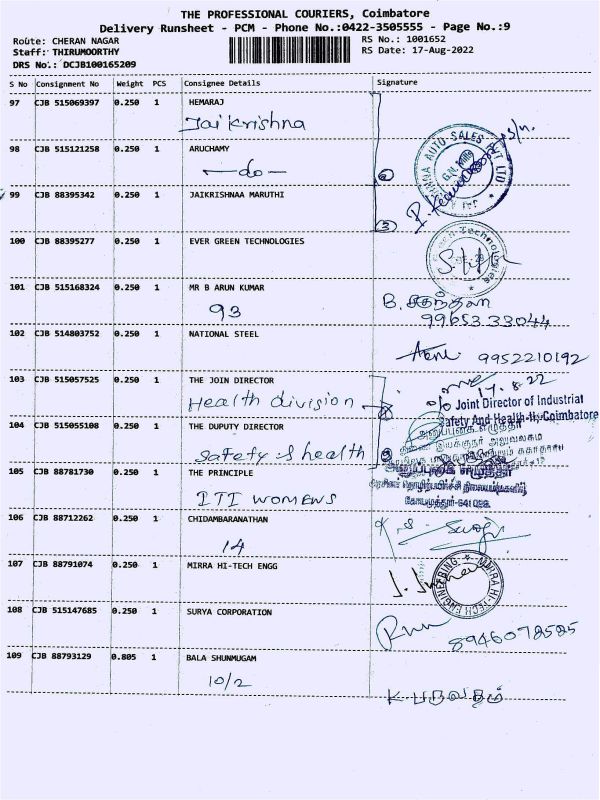 THE PROFESSIONAL COURIERS, Coimbatore
Delivery Runsheet - PCM - Phone No.:0422-3505555 - Page No.:9
Route: CHERAN NAGAR
RS No.: 1001652
Staff: THIRUMOORTHY
RS Date: 17-Aug-2022
DRS No.: DCJB100165209
S No Consignment No Weight PCS Consignee Details Signature
97 CJB 515069397 0.250 1 HEMARAJ
Jai Krishna
98 CJB 515121258 0.250 1 ARUCHAMY
-do-
99 CJB 88395342 0.250 1 JAIKRISHNAA MARUTHI
3
100 CJB 88395277 0.250 1 EVER GREEN TECHNOLOGIES
101 CJB 515168324 0.250 1 MR B ARUN KUMAR
93
99653 33044
102 CJB 514803752 0.250 1 NATIONAL STEEL
9952210192
17.8.22
103 CJB 515057525 0.250 1 THE JOIN DIRECTOR
Health division
Joint Director of Industrial
Safety And Health-II, Coimbatore
104 CJB 515055108 0.250 1 THE DUPUTY DIRECTOR
safety is health
105 CJB 88781730 0.250 1 THE PRINCIPLE
ITI WOMENS
106 CJB 88712262 0.250 1 CHIDAMBARANATHAN
14
107 CJB 88791074 0.250 1 MIRRA HI-TECH ENGG
MIRRA HI-TECH ENGINEERING
108 CJB 515147685 0.250 1 SURYA CORPORATION
8946078585
109 CJB 88793129 0.805 1 BALA SHUNMUGAM
10/2